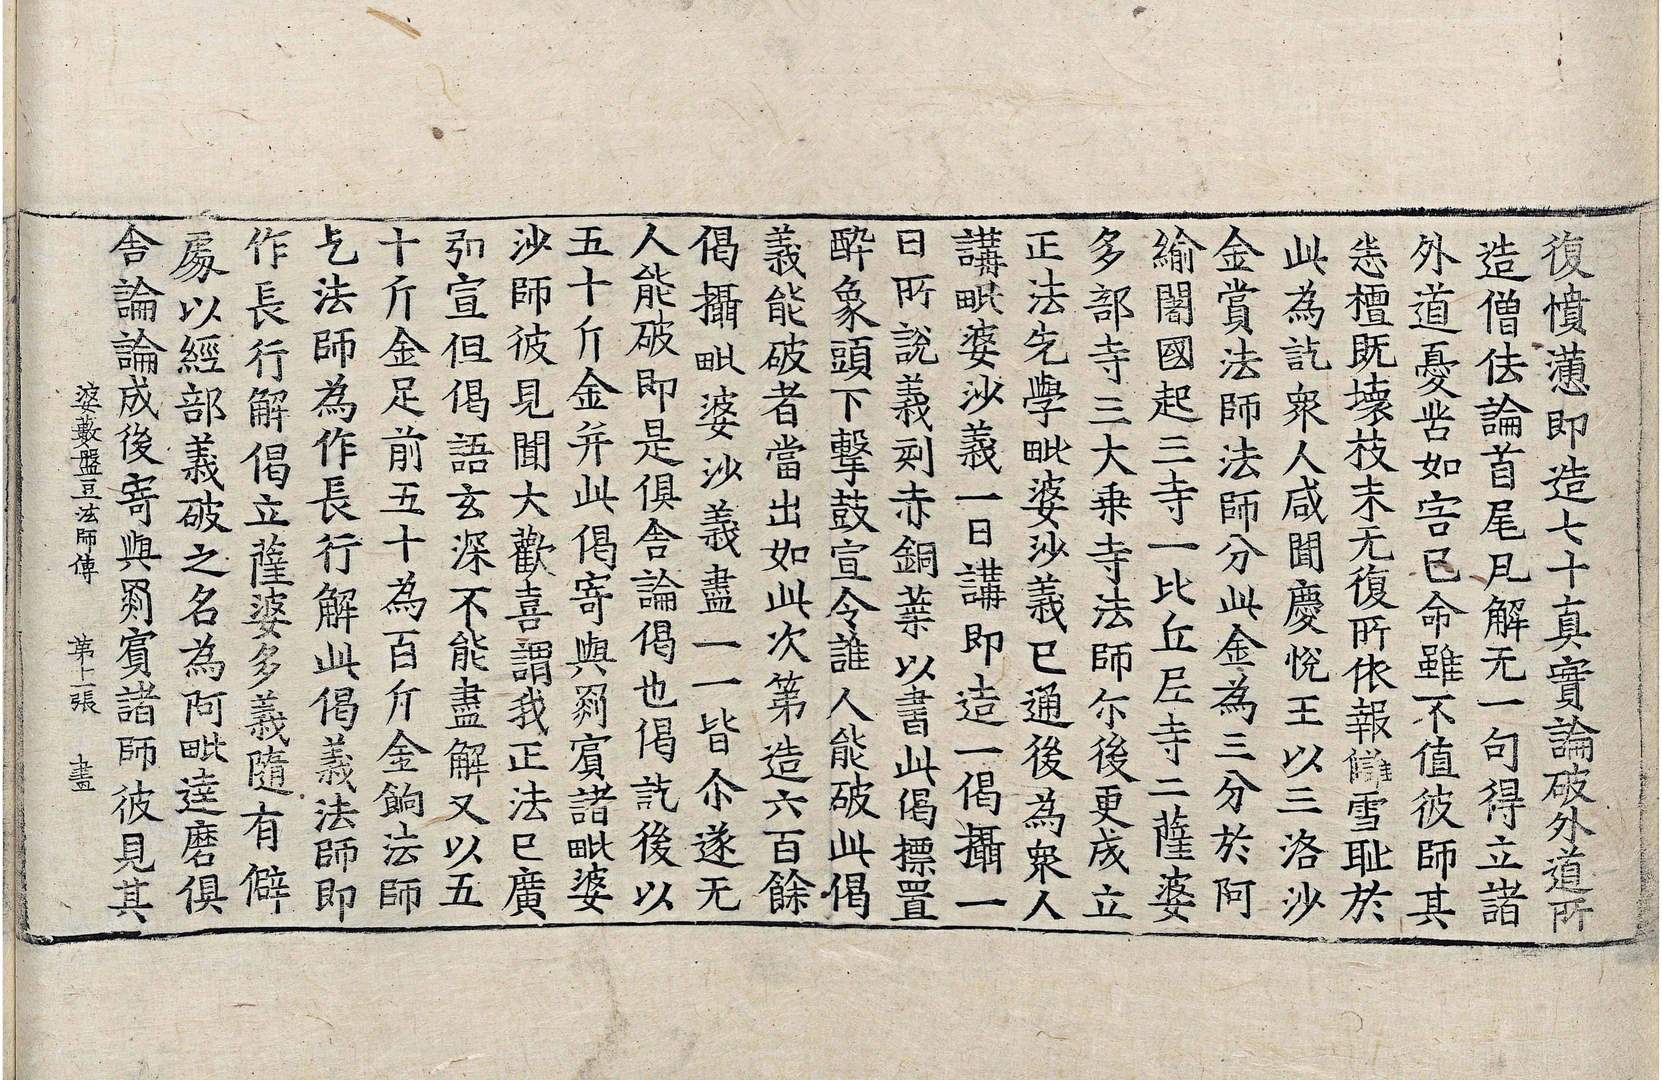 復憤懣即造七十真實論破外道所
造僧佉論首尾凡解无一句得立諸
外道憂苦如害己命雖不值彼師其
恚檀既壞枝末无復所依報讎雪耻於
此為訖衆人咸聞慶恱王以三洛沙
金賞法師法師分此金為三分於阿
緰闍國起三寺一比丘尼寺二薩婆
多部寺三大乗寺法師尒後更成立
正法先學毗婆沙義已通後為衆人
講毗婆沙義一日講即造一偈攝一
日所說義刻赤銅葉以書此偈摽置
醉象頭下擊鼓宣令誰人能破此偈
義能破者當出如此次第造六百餘
偈攝毗婆沙義盡一一皆尒遂无
人能破即是俱舍論偈也偈訖後以
五十斤金并此偈寄與罽賓諸毗婆
沙師彼見聞大歡喜謂我正法已廣
弘宣但偈語玄深不能盡解又以五
十斤金足前五十為百斤金餉法師
乞法師為作長行解此偈義法師即
作長行解偈立薩婆多義隨有僻
處以經部義破之名為阿毗達磨俱
舍論論成後寄與罽賓諸師彼見其
婆藪盤豆法師傳　第十一張　畫